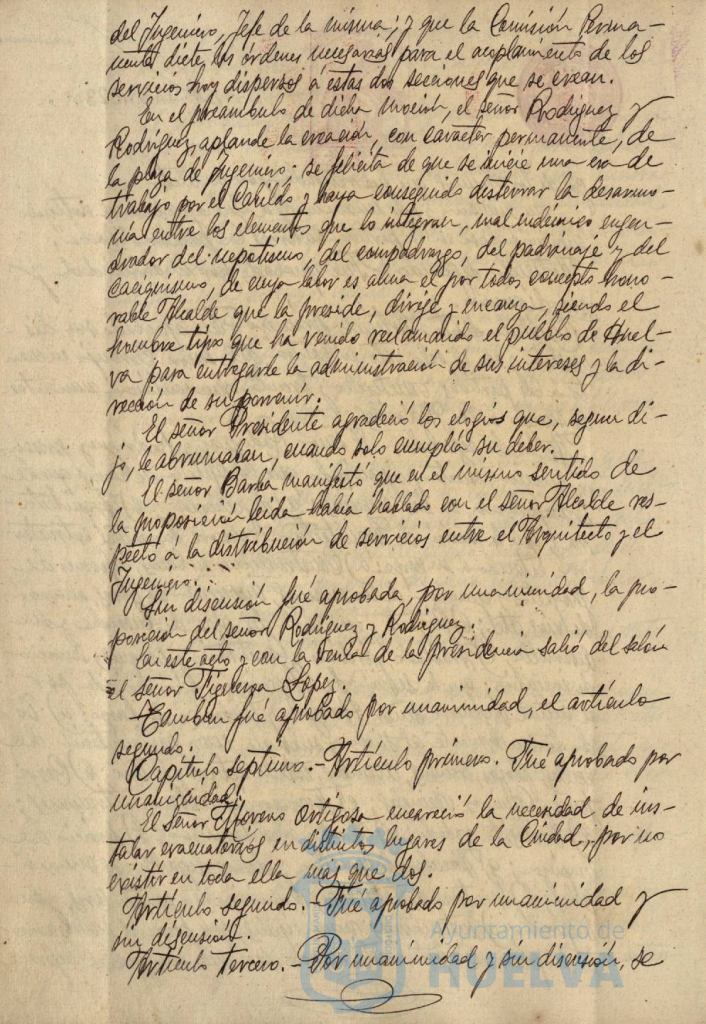 del Ingeniero, Jefe de la misma; y que la Comisión Perma-
nente dicte las órdenes necesarias para el acoplamiento de los
servicios hoy dispersos á estas dos secciones que se crean.
En el preámbulo de dicha moción, el señor Rodriguez y
Rodriguez, aplaude la creación, con caracter permanente, de
la plaza de Ingeniero; se felicita de que se inicie una era de
trabajo por el Cabildo y haya conseguido desterrar la desarmo-
nía entre los elementos que lo integran, mal endémico engen-
drador del nepotismo, del compadrazgo, del padrinaje y del
caciquismo, de cuya labor es alma el por todos conceptos hono-
rable Alcalde que la preside, dirige y encauza, siendo el
hombre tipo que ha venido reclamando el pueblo de Huel-
va para entregarle la administración de sus intereses y la di-
rección de su porvenir.
El señor Presidente agradeció los elogios que, segun di-
jo, le abrumaban, cuando solo cumplía su deber.
El señor Barba manifestó que en el mismo sentido de
la proposición leida había hablado con el señor Alcalde res-
pecto á la distribución de servicios entre el Arquitecto y el
Ingeniero.
Sin discusión fué aprobada, por unanimidad, la pro-
posición del señor Rodriguez y Rodriguez.
En este acto y con la venia de la presidencia salió del salón
el señor Figueroa Lopez.
Tambien fué aprobado por unanimidad, el artículo
segundo.
Capítulo septimo.- Artículo primero. Fué aprobado por
unanimidad.
El Señor Moreno Ortigosa encareció la necesidad de ins-
talar evacuatorios en distintos lugares de la Ciudad, por no
existir en toda ella más que dos.
Artículo segundo.- Fué aprobado por unanimidad y
sin discusión.
Artículo tercero.- Por unanimidad y sin discusión, se
Ayuntamiento de
HUELVA